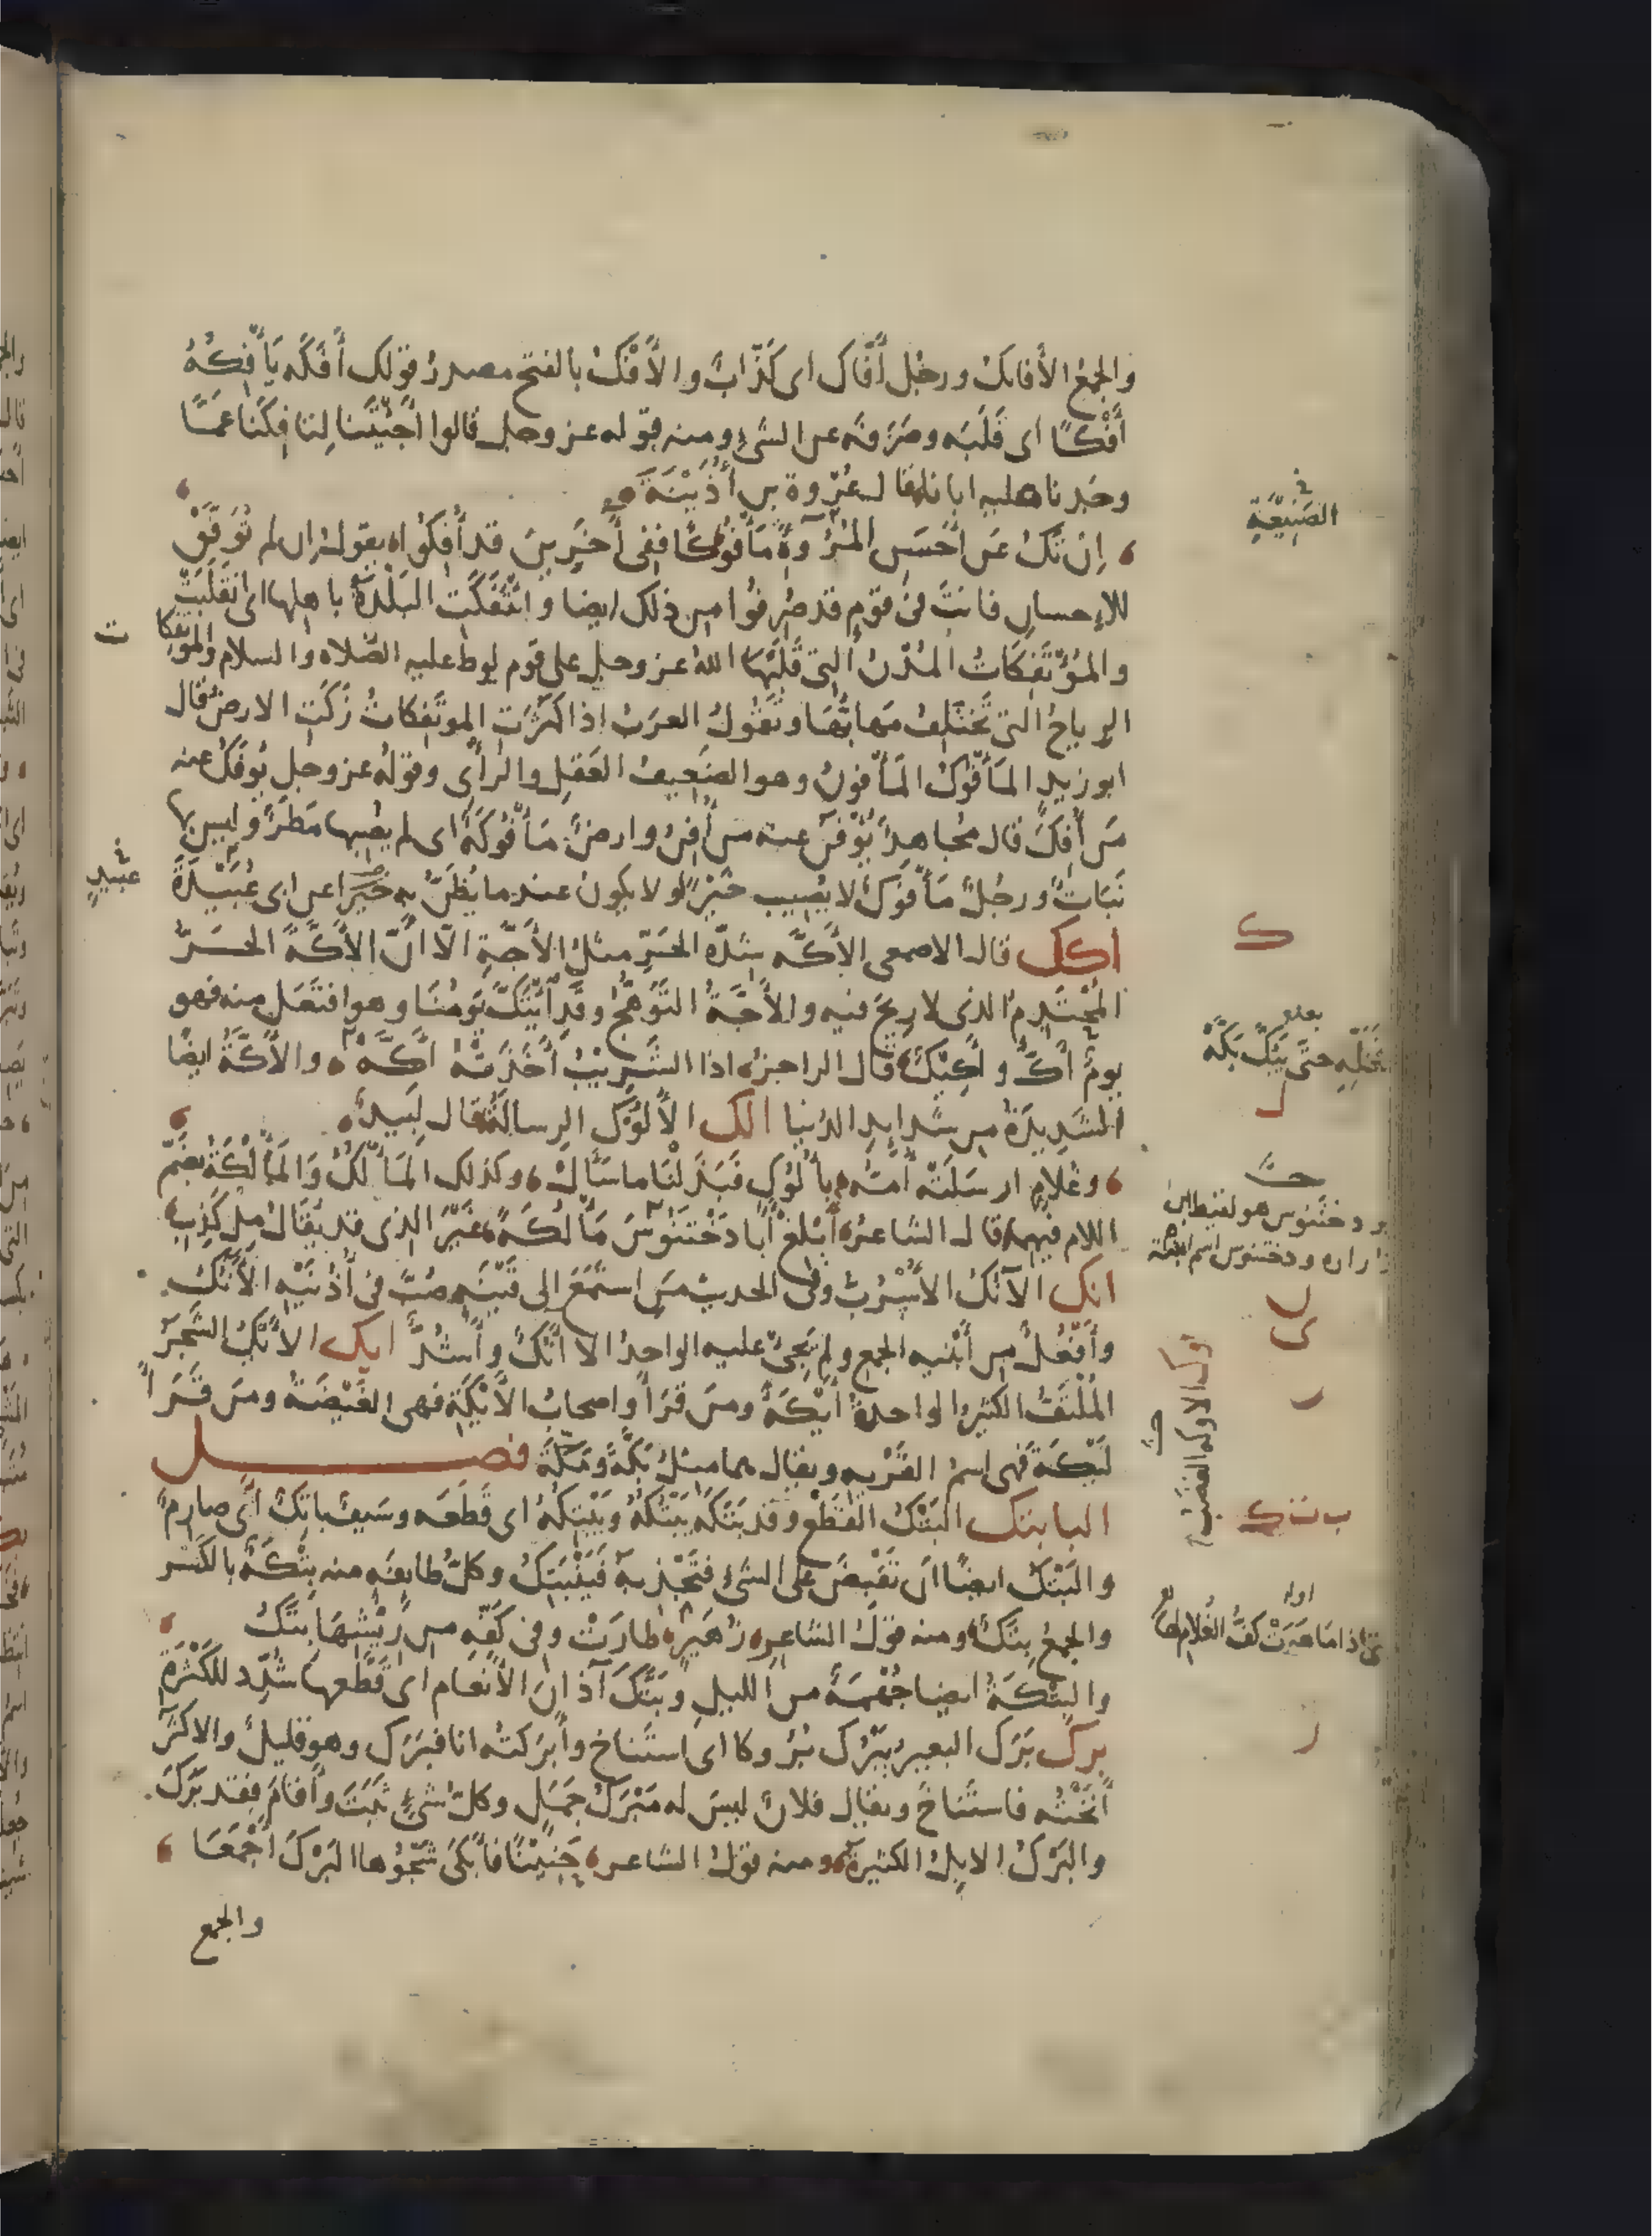 والجمعُ الأفائكُ ورجُل أَفّاك اى كَذّابٌ والأَفْكُ بالفتح مصدرُ قولك أَفَكَه يَأْفِكُهُ
أَفْكًا اى قَلَبَه وصَرَفَه عن الشىءِ ومنه قوله عز وجل قالوا أَجِئْتَنا لِتَافِكَنا عَمَّا
وجَدنا عليه اباءنا قال عُرْوة بن أُذَيْنَةَ
إِنْ تَكُ عَن أَحْسَنِ المُرُوءَةِ مَأْفُوكًا ففى آخَرِينَ قد أُفِكُوا يقول ان لم تُوَفَّقْ
للإحسان فانتَ فى قومٍ قد صُرِفُوا من ذلك ايضا وائْتَفَكَتِ البَلْدَةُ باهلها اى انقَلَبَتْ
والمُؤْتَفِكَاتُ المُدُنُ التى قَلَبَهَا اللهُ عز وجل على قوم لوط عليه الصلاه والسلام والموتفكا
ت
الرياحُ التى تَختَلِفُ مَهابُّهَا وتَقولُ العرَبُ اذا كَثُرَتِ الموتَفِكاتُ زَكَتِ الارضُ قال
ابو زيدٍ المَأْفُوكُ المَأْفونُ وهو الضَعِيفُ العَقلِ والرأْىِ وقولُه عز وجل يُوفَكُ عنه
مَن أُفِكَ قال مجاهدٌ يُؤْفَنُ عنه من أُفِنَ وارضٌ مَأْفُوكَةٌ اى لم يصبها مَطَرٌ وليس بها
نَبَاتٌ ورجُلٌ مَأْفُوكٌ لا يُصِيب خَيْرًا ولا يكون عند ما يُظَنُّ بِه خيرٌ عن ابى عُبَيْدَةَ
عبيدٍ
اكك قال الاصمعى الأَكَّه شِدّه الحَرِّ مثلُ الأَجَّةِ الّا أَنّ الأَكَّةَ الحَرُّ
المُحْتَدِمُ الذى لا رِيحَ فيه والأَجَّةُ التَّوَهُّجُ وقد ائْتَكَّ يَومُنَا وهو افتَعَلَ منه فهو
يومٌ أَكٌّ وأَكِيكٌ قال الراجزُ اذا الشَّرِيبُ أَخَذَتْهُ أَكَّهْ والأَكَّةُ ايضًا
الشَدِيدَةُ من شدايدِ الدُنيا الك الأَلُوكُ الرسالَةُ قال لَبِيدٌ
وغُلامٍ ارسَلَتْه أُمُّه بِأَلُوكٍ فبَذَلْنَا ما سَأَلْ وكذلك المَأْلُكُ وَالمَأْلُكَةُ بضم
اللام فيهما قال الشاعرُ أَبْلِغْ أَبَا دَخْتَنُوسَ مَأْلُكَةً غَيْرَ الذى قد يُقَالُ مِلكَذِبِ
انك الآنُكُ الأُسْرُبُّ وفى الحديث مَن استَمَعَ الى قَيْنَةٍ صُبَّ فى أُذُنَيْهِ الآنُكُ
وأَفْعُلٌ من أَبْنيه الجمع ولم يَجِئْ عليه الواحدُ الا آنُكٌ وأَشُدٌّ ايك الأَيْكُ الشَجَرُ
المُلْتَفُّ الكثيرُ الواحدةُ أَيْكَةٌ ومَن قَرَأَ واصحابُ الأَيْكَةِ فهى الغَيْضَةُ ومَن قَرَأَ
لَيْكَةَ فهى اسمُ القَرْيه ويقال هما مثلُ بَكَّةَ ومَكّةَ فصــل
البا بتك البَتْكُ القَطْعُ وقد بَتَكَه يَبْتُكُهُ وَيَبْتِكُهُ اى قَطَعَه وسَيفٌ باتِكٌ أَى صارِمٌ
والبَتْكُ ايضًا ان تَقْبِضَ على الشىءِ فتَجْذِبهُ فَيَنْبَتِكُ وكلُّ طايفَه منه بِتْكَةٌ بالكَسر
والجمعُ بِتَكٌ ومنه قولُ الشاعرِ زُهَيرٍ طارَتْ وفى كَفِّهِ من رِيْشِهَا بِتَكُ
والبِتْكَةُ ايضا جُهْمَةٌ من الليلِ وبَتَّكَ آذانَ الأَنْعام اى قَطَّعها شُدِّد للكَثرةِ
برك بَرَك البعيرُ يَبْرُك بُرُوكا اى استَناخ وأَبرَكتُه انا فبَرَك وهو قليلٌ والاكثَرُ
أَنَخْتُه فاستَناخَ ويقال فلانٌ ليسَ له مَبْرَكُ جَمَلٍ وكلُّ شىءٍ ثَبَتَ وأَقامَ فقد بَرَكَ
والبَرْكُ الابِلُ الكثيرةُ ومنه قولُ الشاعر حَنِيْنًا فأَبكَى شَجْوُها البَرْكَ أَجْمَعَا
والجمع
الصَنِيعَةِ
ك
فَخَلِّهِ حتَّى يَبُكَّ بَكَّهْ
ل
ابو دختنوس هو لقيط ابن
زراره ودختنوس اسم ابنته
ن
ى
ر
ب ت ك
حتى اذا ما هَوَتْ كَفُّ الغُلامِ لها
ر